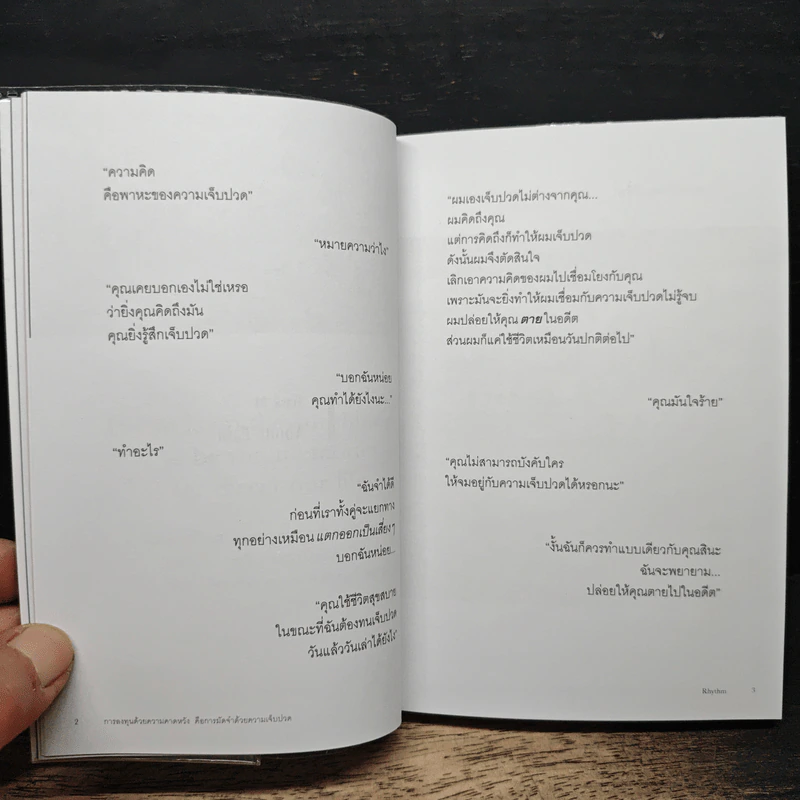 “ความคิด
คือพาหะของความเจ็บปวด”
“หมายความว่าไง”
“คุณเคยบอกเองไม่ใช่เหรอ
ว่ายิ่งคุณคิดถึงมัน
คุณยิ่งรู้สึกเจ็บปวด”
“บอกฉันหน่อย
คุณทำได้ยังไงนะ...”
“ทำอะไร”
“ฉันจำได้ดี
ก่อนที่เราทั้งคู่จะแยกทาง
ทุกอย่างเหมือน แตกออกเป็นเสี่ยงๆ
บอกฉันหน่อย...
“คุณใช้ชีวิตสุขสบาย
ในขณะที่ฉันต้องทนเจ็บปวด
วันแล้ววันเล่าได้ยังไง”
2 การลงทุนด้วยความคาดหวัง คือการมัดจำด้วยความเจ็บปวด
“ผมเองเจ็บปวดไม่ต่างจากคุณ...
ผมคิดถึงคุณ
แต่การคิดถึงก็ทำให้ผมเจ็บปวด
ดังนั้นผมจึงตัดสินใจ
เลิกเอาความคิดของผมไปเชื่อมโยงกับคุณ
เพราะมันจะยิ่งทำให้ผมเชื่อมกับความเจ็บปวดไม่รู้จบ
ผมปล่อยให้คุณ ตาย ในอดีต
ส่วนผมก็แค่ใช้ชีวิตเหมือนวันปกติต่อไป”
“คุณมันใจร้าย”
“คุณไม่สามารถบังคับใคร
ให้จมอยู่กับความเจ็บปวดได้หรอกนะ”
“งั้นฉันก็ควรทำแบบเดียวกับคุณสินะ
ฉันจะพยายาม...
ปล่อยให้คุณตายไปในอดีต”
Rhythm 3